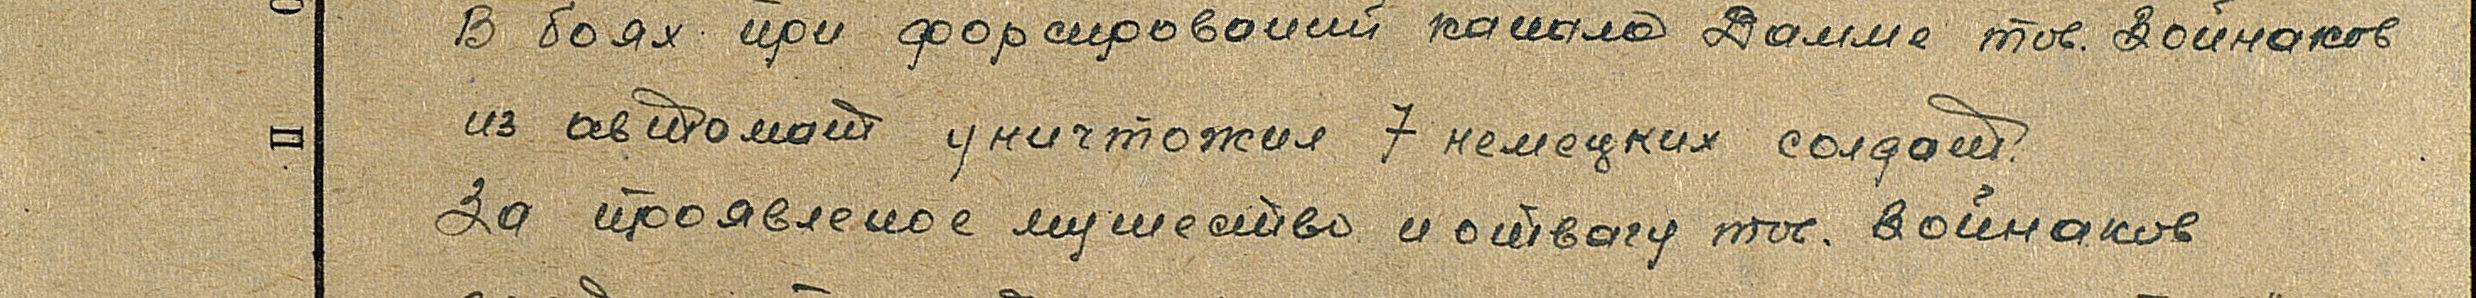 В боях при форсировании канала Дамме тов. Войнаков
из автомат уничтожил 7 немецких солдат.
За проявленое мужество и отвагу тов. Войнаков